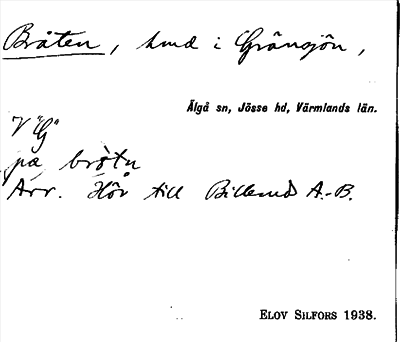 Bråten, hmd i Gränsjön,
Älgå sn, Jösse hd, Värmlands län.
V "G"
på bròtn
Arr. Hör till Billeruds A.-B.
ELOV SILFORS 1938.